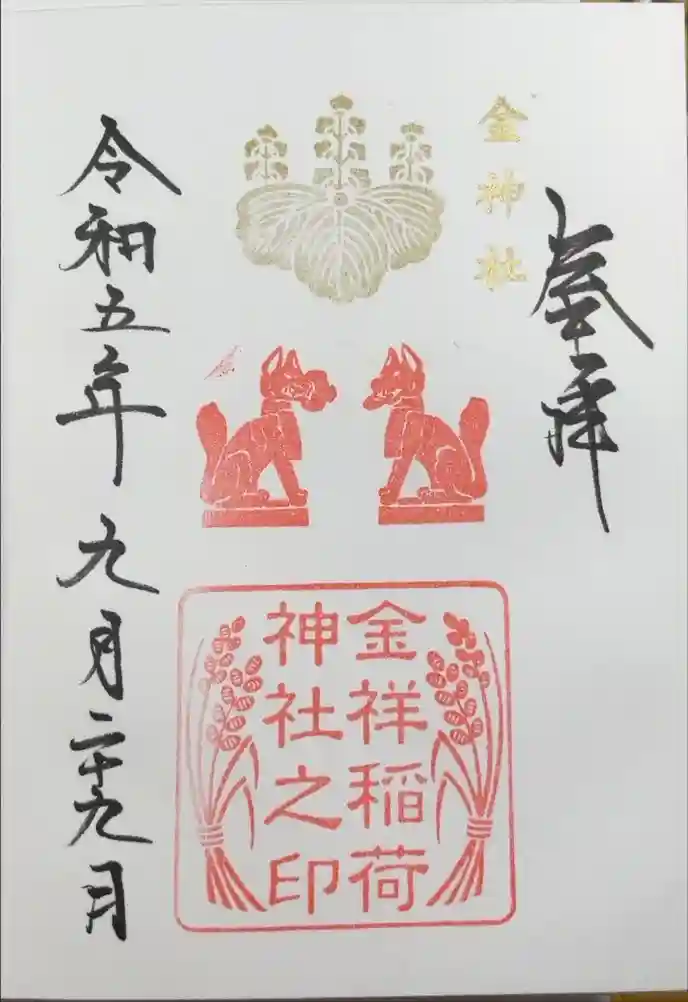 参拝
金神社
金祥稲荷
神社之印
令和五年九月二十九日